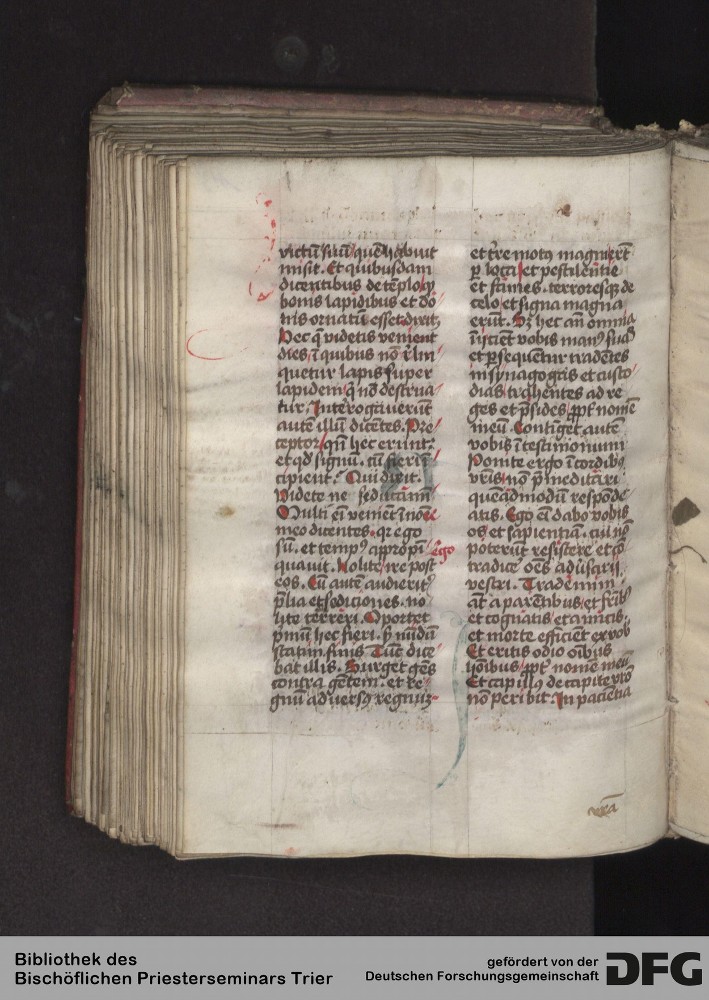 victū suū quē habuit
misit. Et quibusdam
dicentibus de templo qƺ
bonis lapidibus et do
nis ornatū esset dixit
Hec q̄ videtis venient
dies ī quibus nō rͥlin
quetur lapis super
lapidem q̄ nō destrua
tur. Interrogauerūt
autē illū dicētes. Pre
ceptor qn̄ hec erunt.
et qd̓ signū. cū fieri ī
cipient. Qui dixit.
Videte ne seducamī
Multi eī veniēt ī noīe
meo dicentes. qr ego
sū. et tempꝰ appropī
quauit. Nolite ire post
eos. Cū autē audieritꝭ
p̄lia et sediciones. no
lite terreri. Oportet
p̄mū hec fieri. sꝫ nūdū
statim finis. Tūc dice
bat illis. Surget gēs
contra gētem. et re
gnū aduersꝰ regnū
ego
et t̄re motꝰ magni er̄t
ꝑ loca et pestilētie
et fames. terroresqꝫ de
celo et signa magna
erūt. Sꝫ hec an̄ omnia
īicient vobis manꝰ suas
et ꝑsequentur tradētes
in synagogas et custo
dias trahentes ad re
ges et p̄sides ꝓpt̓ nomē
meū. Contīget autē
vobis ī testimonium
Ponite ergo ī cordibꝰ
vr̄is nō p̄meditari
quēadmodū respōde
atis. Ego eī dabo vobis
os et sapientiā. cui nō
poterūt resistere et cō
tradice oēs aduſarij
vestri. Trademini
aūt a parētibus et fr̄ibꝰ
et cognatis et amicis.
et morte efficiēt ex vob
Et eritis odio oībus
hoībus ꝓpt̓ nomē meū
Et capillꝰ de capite vr̄o
nō peribit. In paciētia
vr̄a
Bibliothek des
Bischöflichen Priesterseminars Trier
gefördert von der
Deutschen Forschungsgemeinschaft
DFG